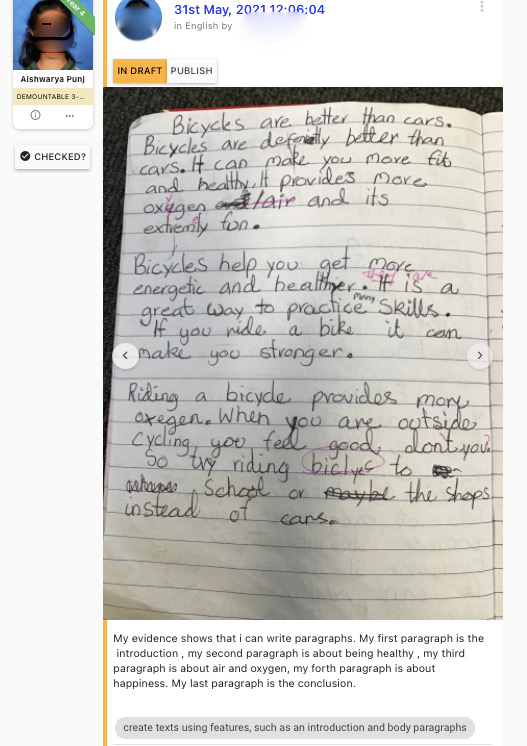 Year 4
Aishwarya Punj
DEMOUNTABLE 3-...
CHECKED?
31st May, 2021 12:06:04
in English by
IN DRAFT PUBLISH
Bicycles are better than cars.
Bicycles are better than
cars. It can make you more fit
and healthy. It provides more
oxygen /air and its
extremly fun.
Bicycles help you get more
energetic and healthier. It is a
they are
great way to practice many skills.
If you ride a bike it can
make you stronger.
Riding a bicycle provides more
oxegen. When you are outside
cycling you feel good, dont you?
So try riding biclyes to
School or maybe the shops
instead of cars.
My evidence shows that i can write paragraphs. My first paragraph is the
introduction , my second paragraph is about being healthy , my third
paragraph is about air and oxygen, my forth paragraph is about
happiness. My last paragraph is the conclusion.
create texts using features, such as an introduction and body paragraphs